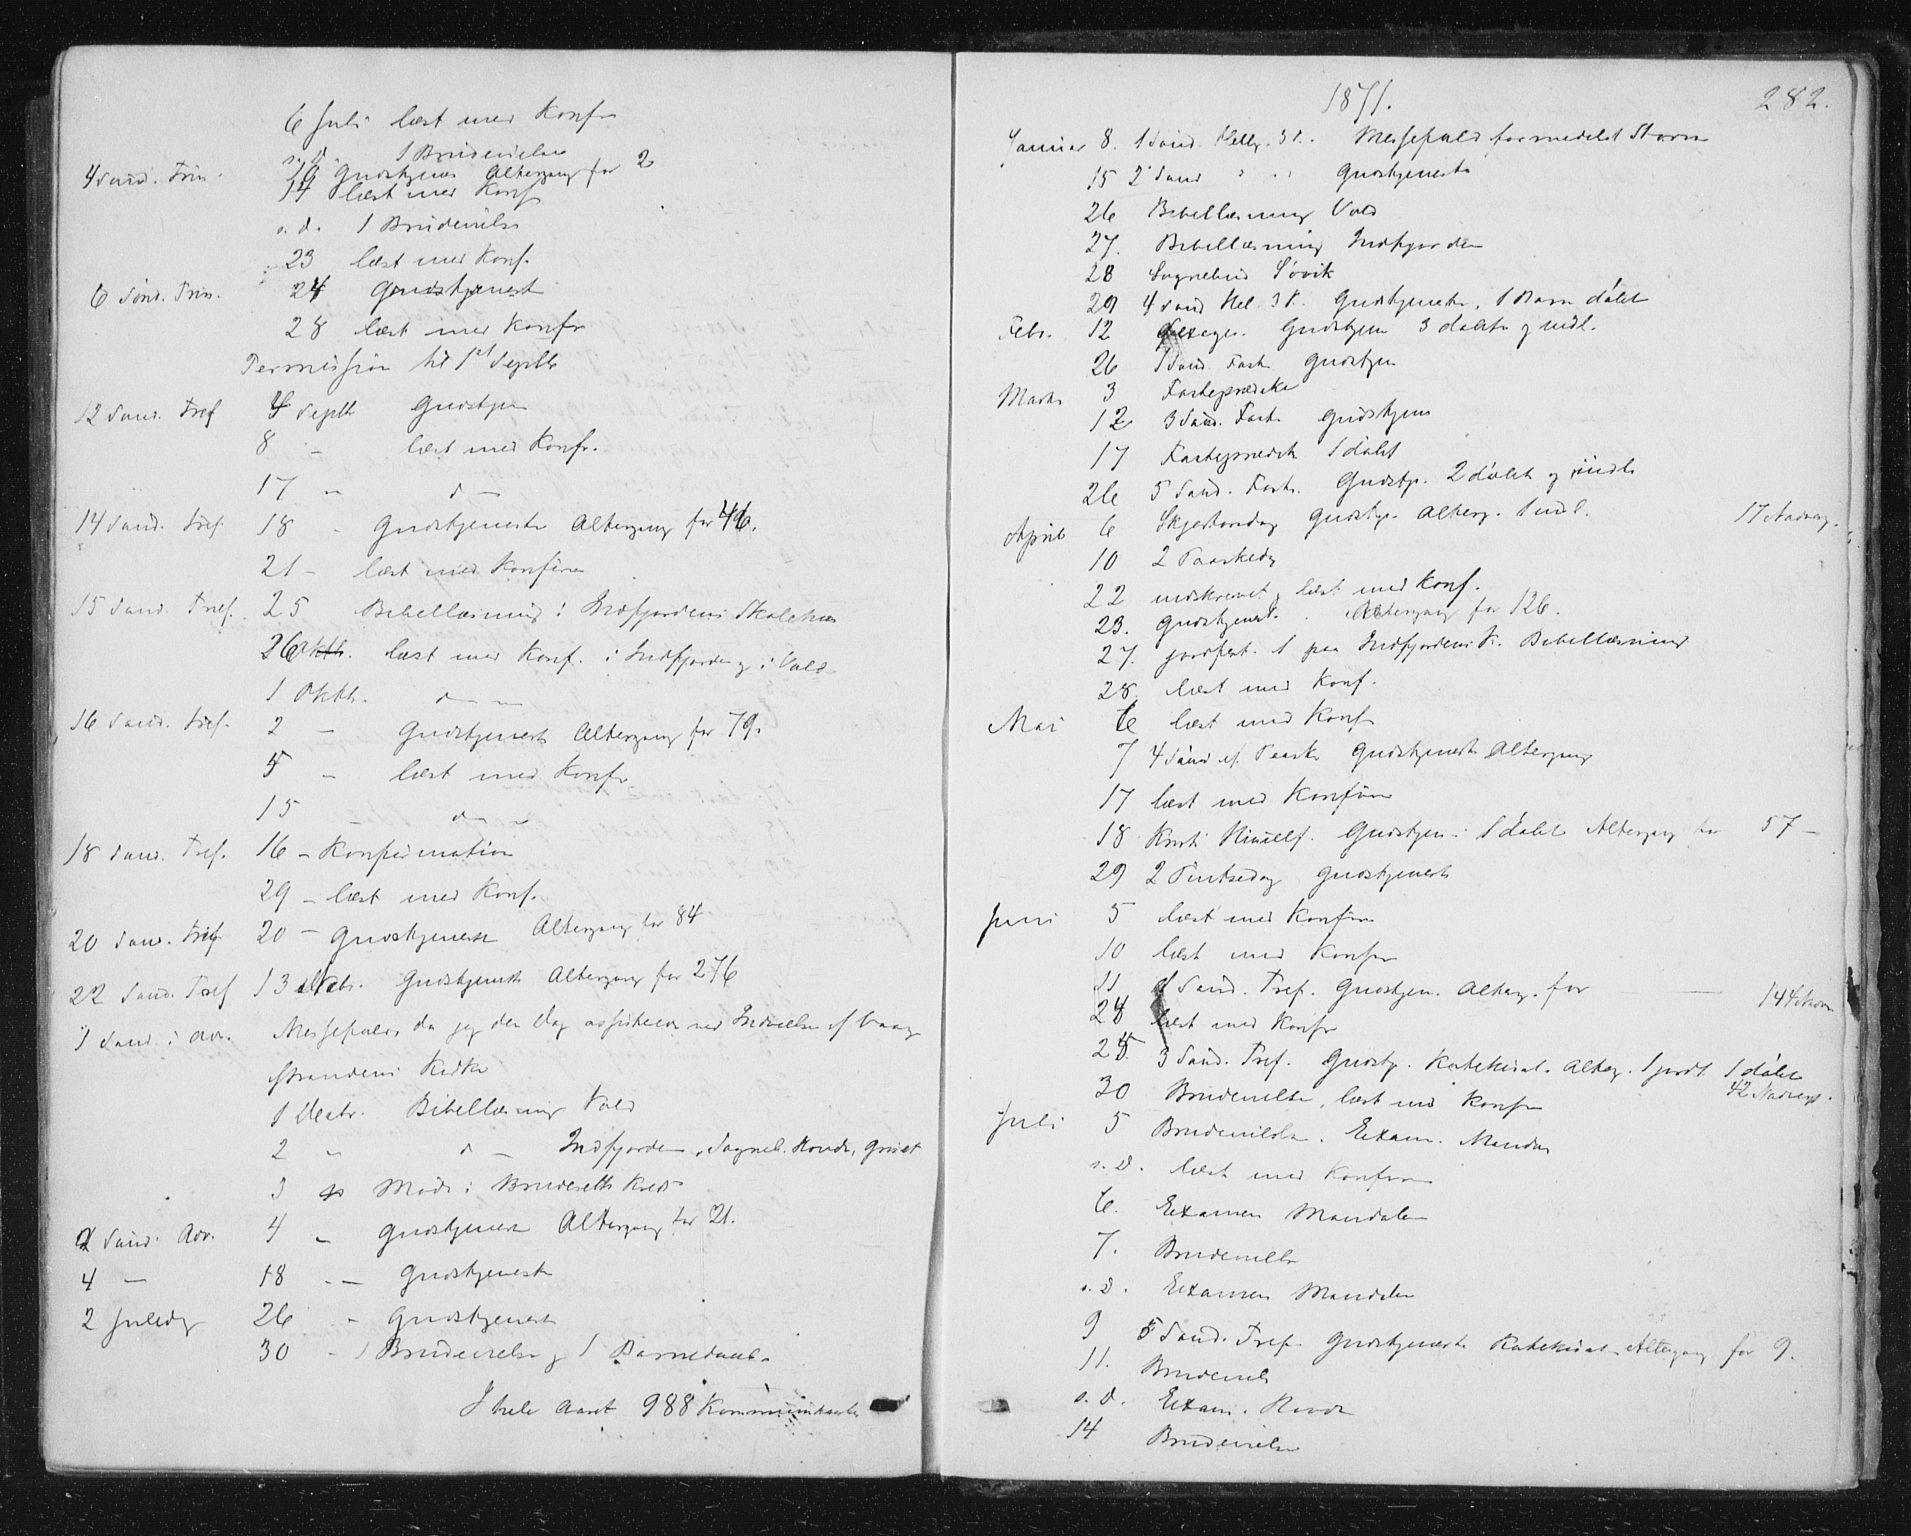 6 Juli læst med Konf
s. d. 1 Brudevielse
4 Sønd. Trin. 10 Gudstjenes Altergang for 2
14 læst med Konf
s. d. 1 Brudevielse
23 læst med Konf.
6 Sønd. Trin. 24 Gudstjenest
28 læst med Konfr
Permission til 1st Septb
12 Sønd. Tref 4 Septb Gudstjen
8 - læst med Konfr.
17 - d -
14 Sønd. Tref. 18 - Gudstjeneste Altergang for 46.
21 - læst med Konfirm
15 Sønd. Tref. 25 Bibellæsning i Indfjordens Skolehus
26 læst med Konf. i Indfjorden og i Vold
1 Oktb. d - -
16 Sønd. Tref. 2 - Gudstjeneste Altergang for 79.
5 - læst med Konfr
15 - d - -
18 Sønd. Tref. 16 - Konfirmation
29 - læst med Konf.
20 Sønd. Tref 20 - Gudstjeneste Altergang for 84
22 Sønd. Tref 13 Gudstjeneste Altergang for 276
1 Sønd. i Adv. Messefald, da jeg den Dag assisterede ved Indvielse af Vaage
strandens Kirke
1 Decbr. Bibellæsning Vold
2 " d - Indfjorden, Sogneb. Hovde, Griset
3 Møde i Bruderetts Kreds
2 Sønd. Adv. 4 - Gudstjenest Altergang for 21.
4 - 18 - Gudstjeneste
2 Juledag 26 - Gudstjenest
30 - 1 Brudevielse og 1 Barnedaab.
I hele Aaret 988 Kommunikanter
1871.
282.
Januar 8. 1 Sønd. Hellig. 3 K. Messefald formedelst Storm
15 2 Sønd " " " Gudstjeneste
26 Bibellæsning Vold
27. Bibellæsning Indfjorden
28 Sognebud Søvik
29 4 Sønd Hel. 3 K. Gudstjeneste, 1 Barn døbt
Febr. 12 Sexages. Gudstjen 3 døbte og indl.
26 1 Sønd. Fast. Gudstjen
Marts 3 Fasteprædike
12 3 Sønd. Faste Gudstjen
17 Fasteprædik 1 døbt
26 5 Sønd. Faste. Gudstj. 2 døbt og indl.
April 6 Skjærtorsdag Gudstje. Alterg. 1 indl. 17 Nadverg.
10 2 Paaskedag
22 indskrevet og læst med Konf.
23. Gudstjenest. Altergang for 126.
27. jordfæst. 1 paa Indfjordens K. Bibellæsning
28. læst med Konf.
Mai 6 læst med Konf
7 4 Sønd ef. Paaske Gudstjeneste Altergang
17 læst med Konfirm
18 Kristi Himelf. Gudstjen. 1 døbt Altergang for 57 -
29 2 Pintsedag Gudstjeneste
Juni 5 læst med Konfirm
10 læst med Konfirm
11 1 Sønd. Tref. Gudstjen. Alterg. for 144
24 læst med Konfr
25. 3 Sønd. Tref. Gudstj. Katekisat. Alterg. 1 jordf. 1 døbt
42 Nadverg.
30 Brudevielse, læst med Konfr
Juli 5 Brudevielse. Exam. Mandal
s. D. læst med Konfirm
6. Examen Mandalen
7. Brudevielse
s. D. Examen Mandalen
9 5 Sønd. Tref. Gudstjeneste Katekisat. Altergang for 9.
11. Brudeviels
s. d. Exam. Hovde
14 Brudevielse